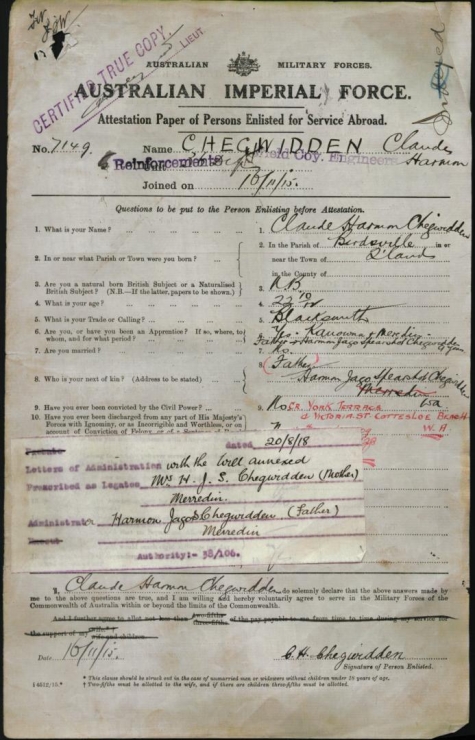 CERTIFIED TRUE COPY
LIEUT.
Indexed
AUSTRALIAN MILITARY FORCES.
AUSTRALIAN IMPERIAL FORCE.
Attestation Paper of Persons Enlisted for Service Abroad.
No. 7149 Name CHEGWIDDEN Claude Harmon
Reinforcements Field Coy. Engineers
Joined on 16/11/15.
Questions to be put to the Person Enlisting before Attestation.
1. What is your Name? 1. Claude Harmon Chegwidden
2. In or near what Parish or Town were you born? 2. In the Parish of Birdsville in or
near the Town of Q'land
in the County of
3. Are you a natural born British Subject or a Naturalised British Subject? (N.B.—If the latter, papers to be shown.) 3. NB
4. What is your age? 4. 22 10/12
5. What is your Trade or Calling? 5. Blacksmith
6. Are you, or have you been an Apprentice? If so, where, to whom, and for what period? 6. Yes - Kanowna & Meredin -
Father Harmon Jago Spearshot Chegwidden
7. Are you married? 7. No.
8. Who is your next of kin? (Address to be stated) 8. (Father)
Harmon Jago Spearshot Chegwidden
9. Have you ever been convicted by the Civil Power? 9. No
YORK TERRACE
VICTORIA ST COTTESLOE BEACH
W.A
10. Have you ever been discharged from any part of His Majesty's
Forces with Ignominy, or as Incorrigible and Worthless, or on
account of Conviction of Felony, or of a Sentence of
dated 20/8/18
Letters of Administration with the Will annexed
Prescribed as Legatee Mrs H. J. S. Chegwidden (Mother)
Merredin.
Administrator Harmon Jago S Chegwidden (Father)
Merredin
Authority:- 38/106.
I, Claude Harmon Chegwidden do solemnly declare that the above answers made by
me to the above questions are true, and I am willing and hereby voluntarily agree to serve in the Military Forces of the
Commonwealth of Australia within or beyond the limits of the Commonwealth.
And I further agree to allot not less than two-fifths three-fifths of the pay payable to me from time to time during my service for
the support of my wife wife and children.
Date 16/11/15. C. H. Chegwidden
Signature of Person Enlisted.
* This clause should be struck out in the case of unmarried men or widowers without children under 18 years of age.
† Two-fifths must be allotted to the wife, and if there are children three-fifths must be allotted.